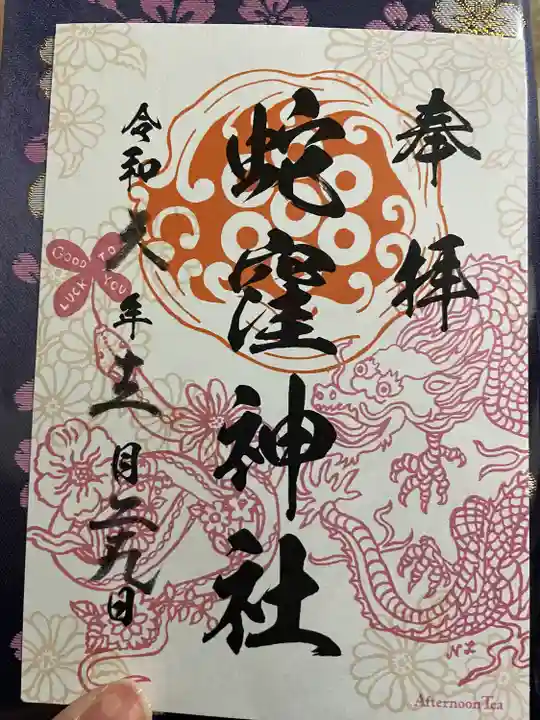 奉拝
蛇窪神社
令和六年十二月二九日
GOOD LUCK TO YOU
Afternoon Tea